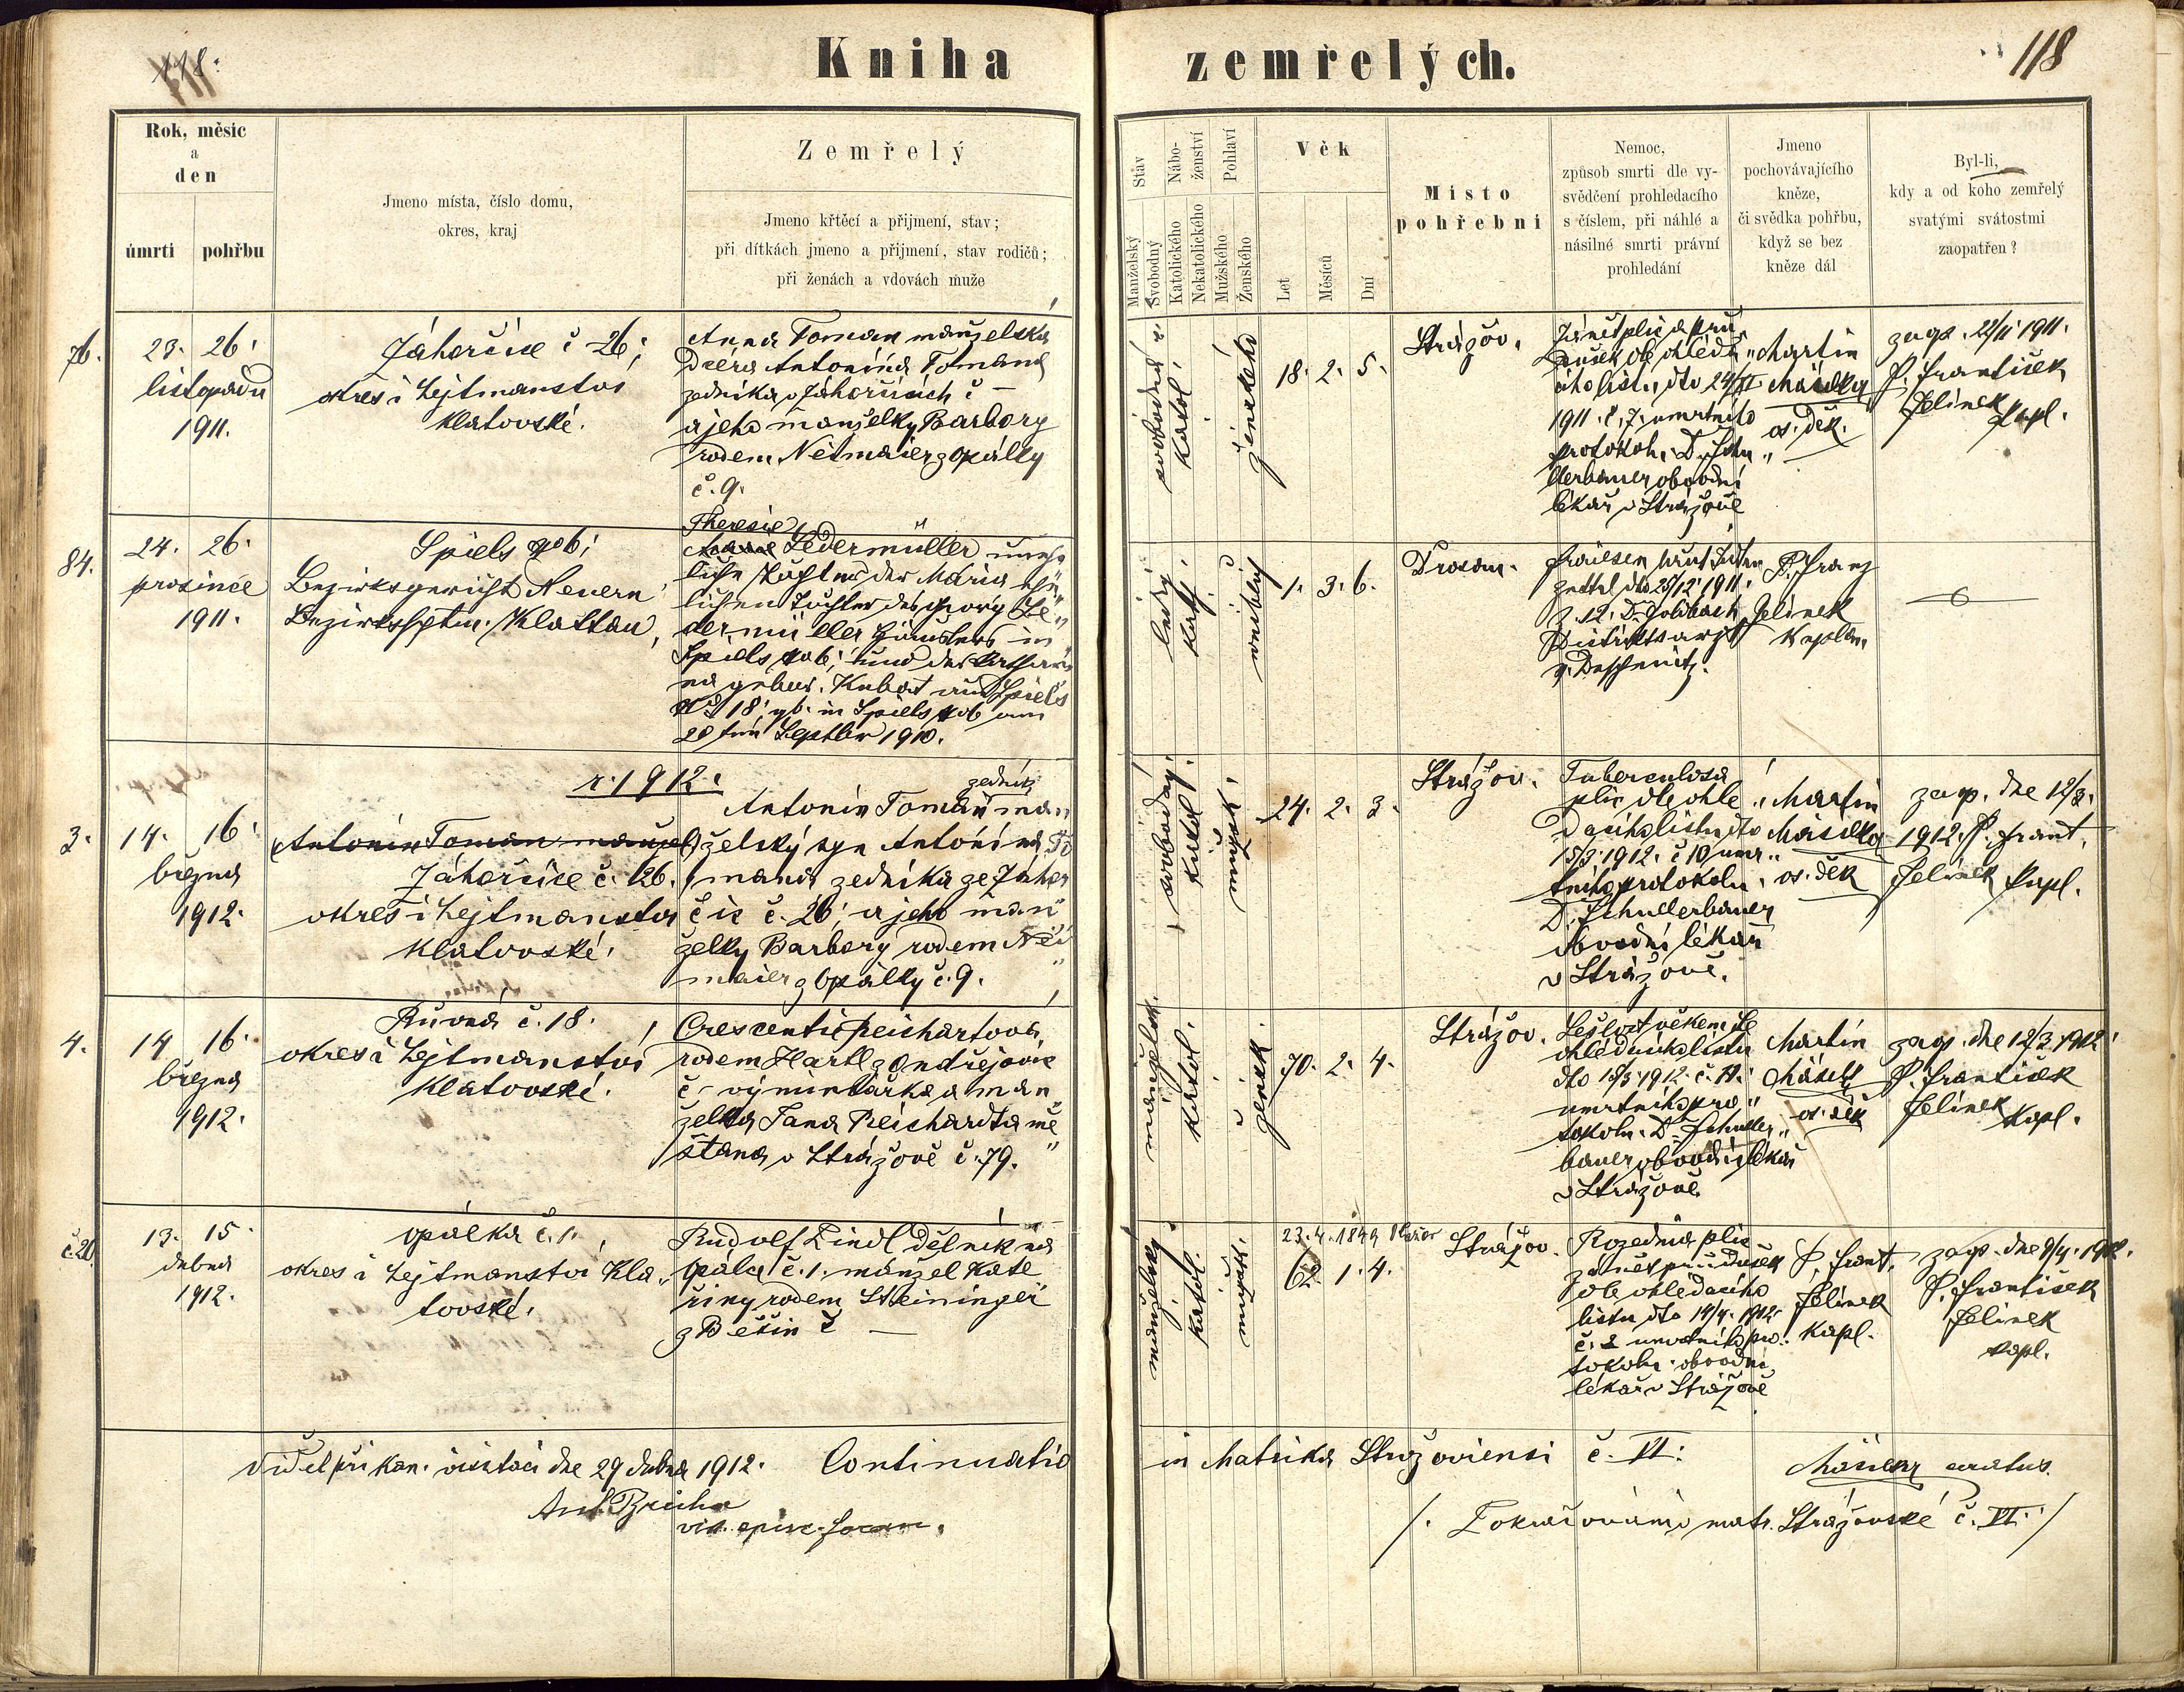 118.
Kniha
zemřelých.
118
Rok, měsíc
a
den
úmrtí
pohřbu
Jmeno místa, číslo domu,
okres, kraj
Zemřelý
Jmeno křtěcí a přijmení, stav;
při dítkách jmeno a přijmení, stav rodičů;
při ženách a vdovách muže
Stav
Manželský
Svobodný
Nábo-
ženství
Katolického
Nekatolického
Pohlaví
Mužského
Ženského
Věk
Let
Měsíců
Dní
Místo
pohřební
Nemoc,
způsob smrti dle vy-
svědčení prohledacího
s číslem, při náhlé a
násilné smrti právní
prohledání
Jmeno
pochovávajícího
kněze,
či svědka pohřbu,
když se bez
kněze dál
Byl-li,
kdy a od koho zemřelý
svatými svátostmi
zaopatřen?
76.
23. 26.
listopadu
1911.
Záhorčice č 26;
okres i hejtmanství
klatovské.
Anna Toman manželská
dcera Antonína Tomana
zedníka v Záhorčicích č –
a jeho manželky Barbory
rodem Neimaier z Opálky
č. 9.
svobodná
katol.
ženské
18. 2. 5.
Strážov.
Zánět plic a prů-
dušek dle ohleda-
cího listu dto 24/XI
1911. č. 7. umrtního
protokolu. Dr. Schu-
llerbauer obvodní
lékař v Strážově
Martin
Mäsilka
os. děk.
zaop. 22/11 1911.
P. František
Jelínek
kapl.
84.
24. 26.
prosince
1911.
Spiels No 6;
Bezirksgericht Neuern
Bezirkshptm. Klattau,
Theresie
Ledermüller unehe-
liche Tochter der Maria ehe-
lichen Tochter des Georg Le-
dermüller Häuslers in
Spiels No 6; und der Kathari-
na gebor. Kubat aus Spiels
No 18; gb. in Spiels No 6 am
20ten Septber 1910.
ledig
kath.
weiblich
1. 3. 6.
Drosau.
Fraisen laut
zettel dto 25/12 1911.
Z. 12. Dr. Goldbach
Distriktsarzt
z. Deschenitz.
P. Franz
Jelínek
Kaplan
r. 1912.
3.
14. 16.
března
1912.
Antonín Toman manžel
Záhorčice č. 26.
okres i hejtmanství
klatovské.
zedník
Antonín Toman man-
želský syn Antonína To-
mana zedníka ze Záhor-
čic č. 26; a jeho man-
želky Barbory rodem Nei-
maier z Opálky č. 9.
svobodný.
katol.
mužsk.
24. 2. 3.
Strážov.
Tuberculosa
plic dle ohle-
dacího listu dto
15/3 1912. č 10 umr-
tního protokolu.
Dr. Schullerbauer
obvodní lékař
v Strážově.
Martin
Mäsilka
os. děk
zaop. dne 12/3.
1912. P. Frant.
Jelínek kapl.
4.
14 16.
března
1912.
Růvná č. 18.
okres i hejtmanství
klatovské.
Crescentie Reichartová,
rodem Hartl z Ondřejovic
č – výminkářka a man-
želka Jana Reicharta mě-
šťana v Strážově č. 79.
manželsk.
katol.
žensk.
70. 2. 4.
Strážov.
Sešlost věkem dle
ohledacího listu
dto 15/3 1912. č. 11.
umrtního pro-
tokolu. Dr. Schuller-
bauer obvodní lékař
v Strážově
Martin
Mäsilka
os. děk
zaop. dne 12/3 1912
P. František
Jelínek
kapl.
č. 20.
13. 15.
dubna
1912.
Opálka č. 1.
okres i hejtmanství Kla-
tovské.
Rudolf Zindl dělník na
Opálce č. 1. manžel Kate-
řiny rodem Steininger
z Běšin č –
manželský
katol.
mužsk.
23. 4. 1849
62. 1. 4.
Strážov.
Rozedma plic
zánět průdušek
dle ohledacího
listu dto 14/4. 1912
č. 2 umrtního pro-
tokolu. obvodní
lékař v Strážově
P. Frant.
Jelínek
kapl.
zaop. dne 9/4. 1912.
P. František
Jelínek
kapl.
Viděl při kan. visitaci dne 29 dubna 1912.
Continuatio
in Matrika Stražoviensi č. VI:
vic.
/. Pokračování v matr. Strážovské č. VI. /